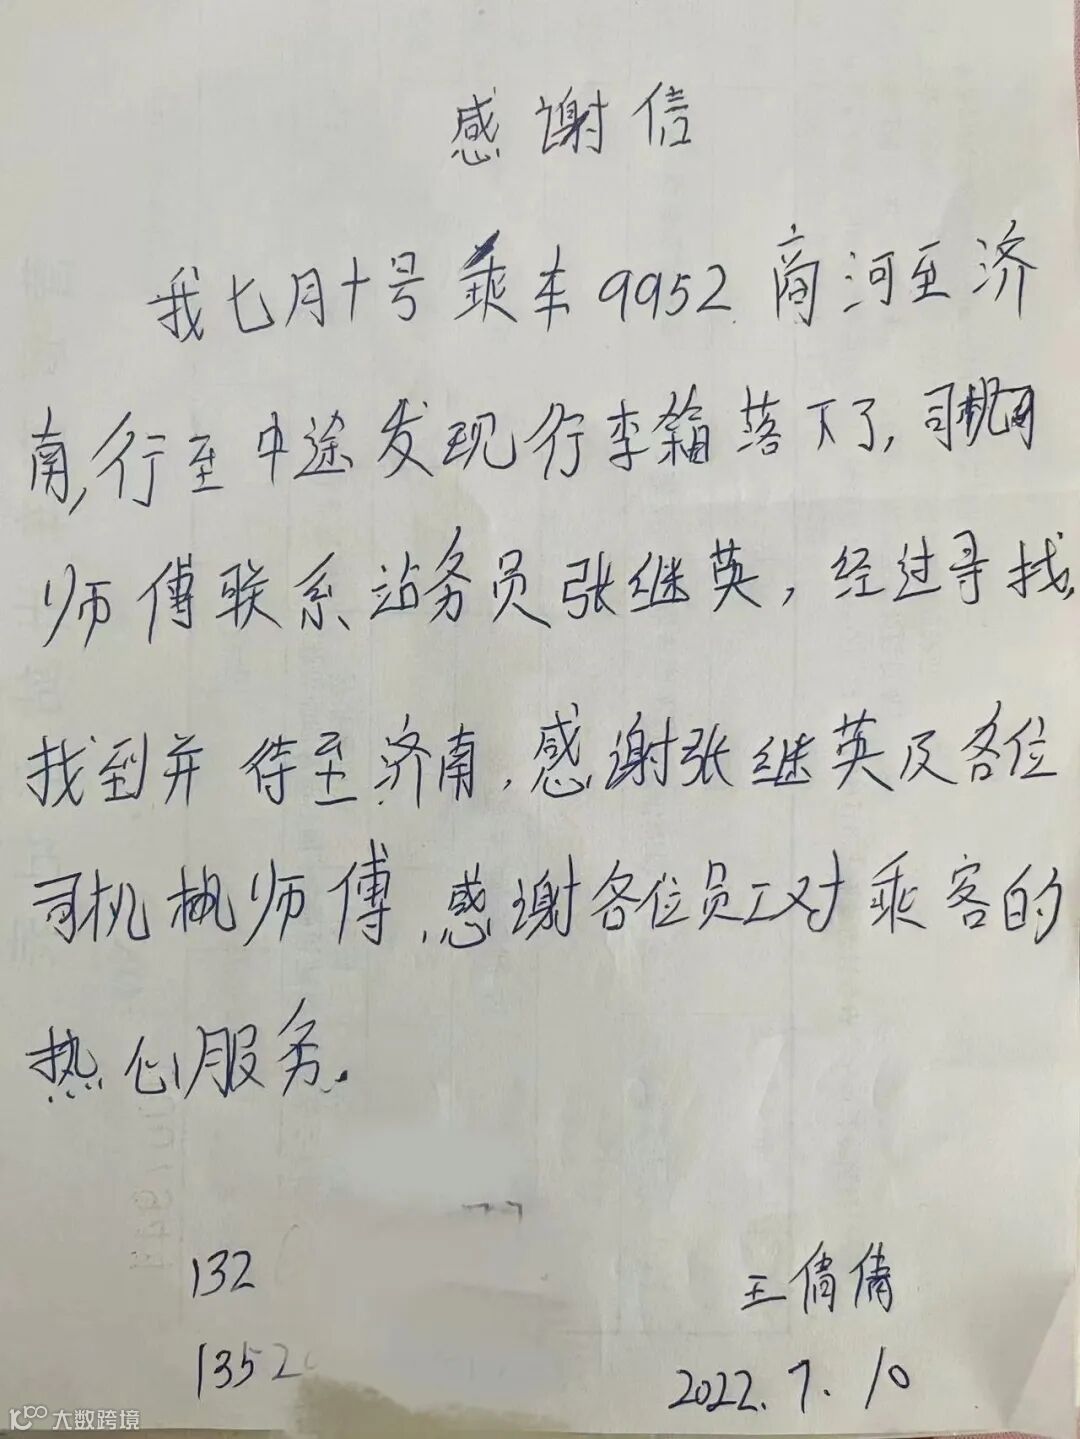 感谢信
我七月十号乘车9952 商河至济
南,行至中途发现行李箱落下了,司机
师傅联系站务员张继英,经过寻找,
找到并待至济南,感谢张继英及各位
司机师傅,感谢各位员工对乘客的
热心服务.
132
王倩倩
1352
2022.7.10
大数跨境